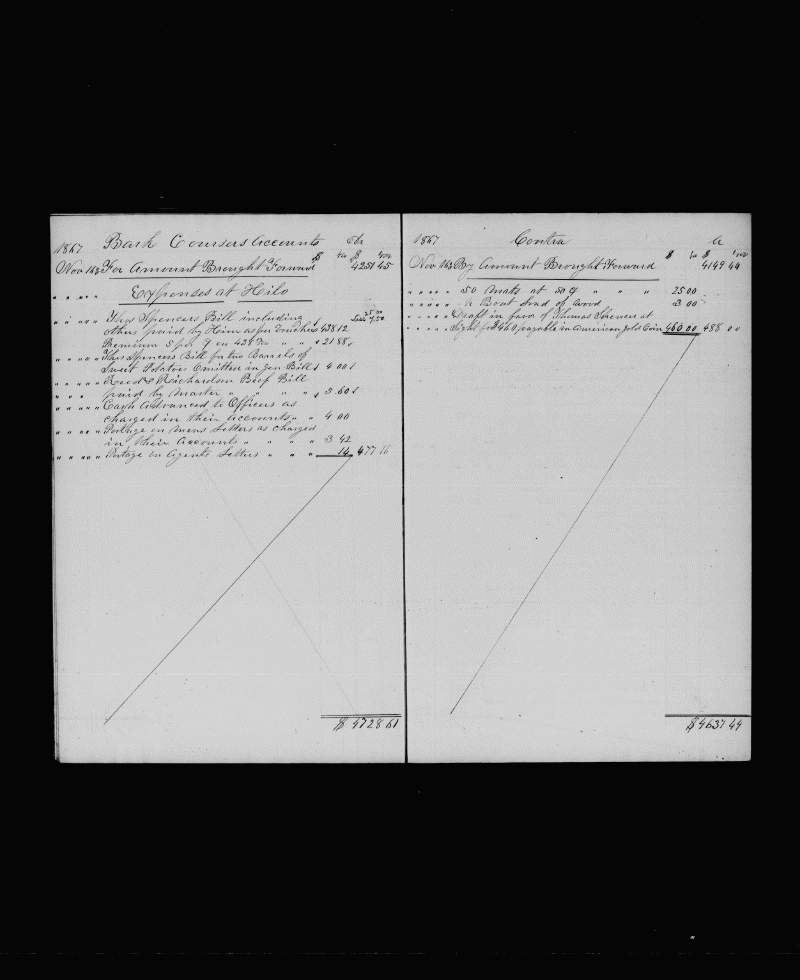 1867 Bark Coursers Accounts Dr
$ $
Nov 16th For Amount Brought Forward 4251 45
" " " " Expenses at Hilo
" " " " Thos Spencers Bill including
others paid by Him as per Vouchers $ 438 12
Premium 5 pr % on 428 " " $ 21 88
" " " " Thos Spencers Bill for two Barrels of
Sweet Potatoes Omitted in Gen Bill $ 4 00
" " " " Reed & Richardson Beef Bill
" " " paid by Master " " " " $ 5 60
" " " " Cash Advanced to Officers as
charged in their Accounts " " 4 00
" " " " Postage on Mens Letters as charged
in their Accounts " " " " 3 42
" " " " Postage on Agents Letters " " " 14 477 16
$ 4728 61
1867 Contra Cr
$ $
Nov 16th By Amount Brought Forward 4149 44
" " " " 50 Mats at 50 ¢ " " " 25 00
" " " " A Boat Load of Wood 3 00
" " " " Draft in favor of Thomas Spencer at
" " " " Sight for $460 payable in American Gold Coin 460 00 488 00
$ 4637 44